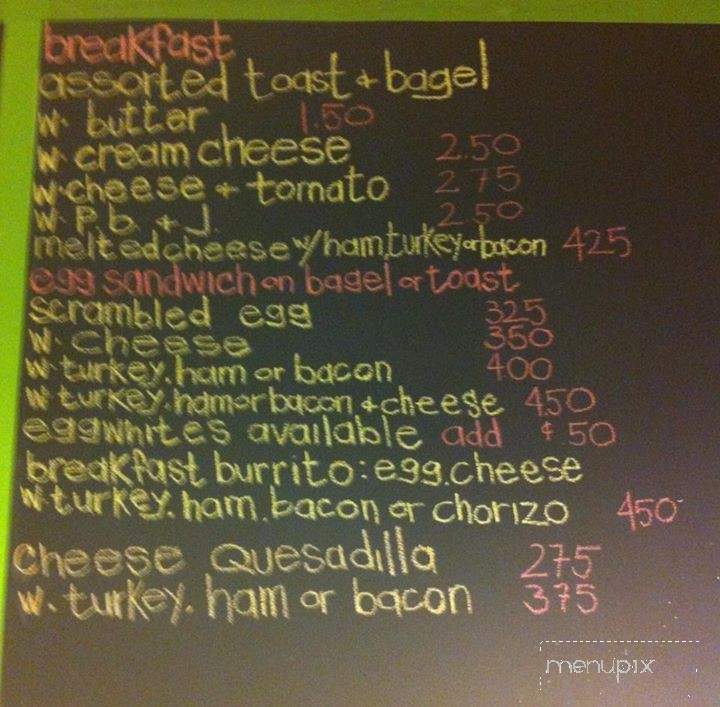 breakfast
assorted toast + bagel
w. butter 1.50
w. cream cheese 2.50
w. cheese + tomato 2 75
w. P.b. + J. 2.50
melted cheese w/ham, turkey or bacon 425
egg sandwich on bagel or toast
scrambled egg 325
w. cheese 350
w turkey. ham or bacon 400
w turkey. ham or bacon + cheese 450
eggwhites available add ¢.50
breakfast burrito: egg. cheese
w. turkey. ham. bacon or chorizo 450
cheese Quesadilla 275
w. turkey. ham or bacon 375
menupix